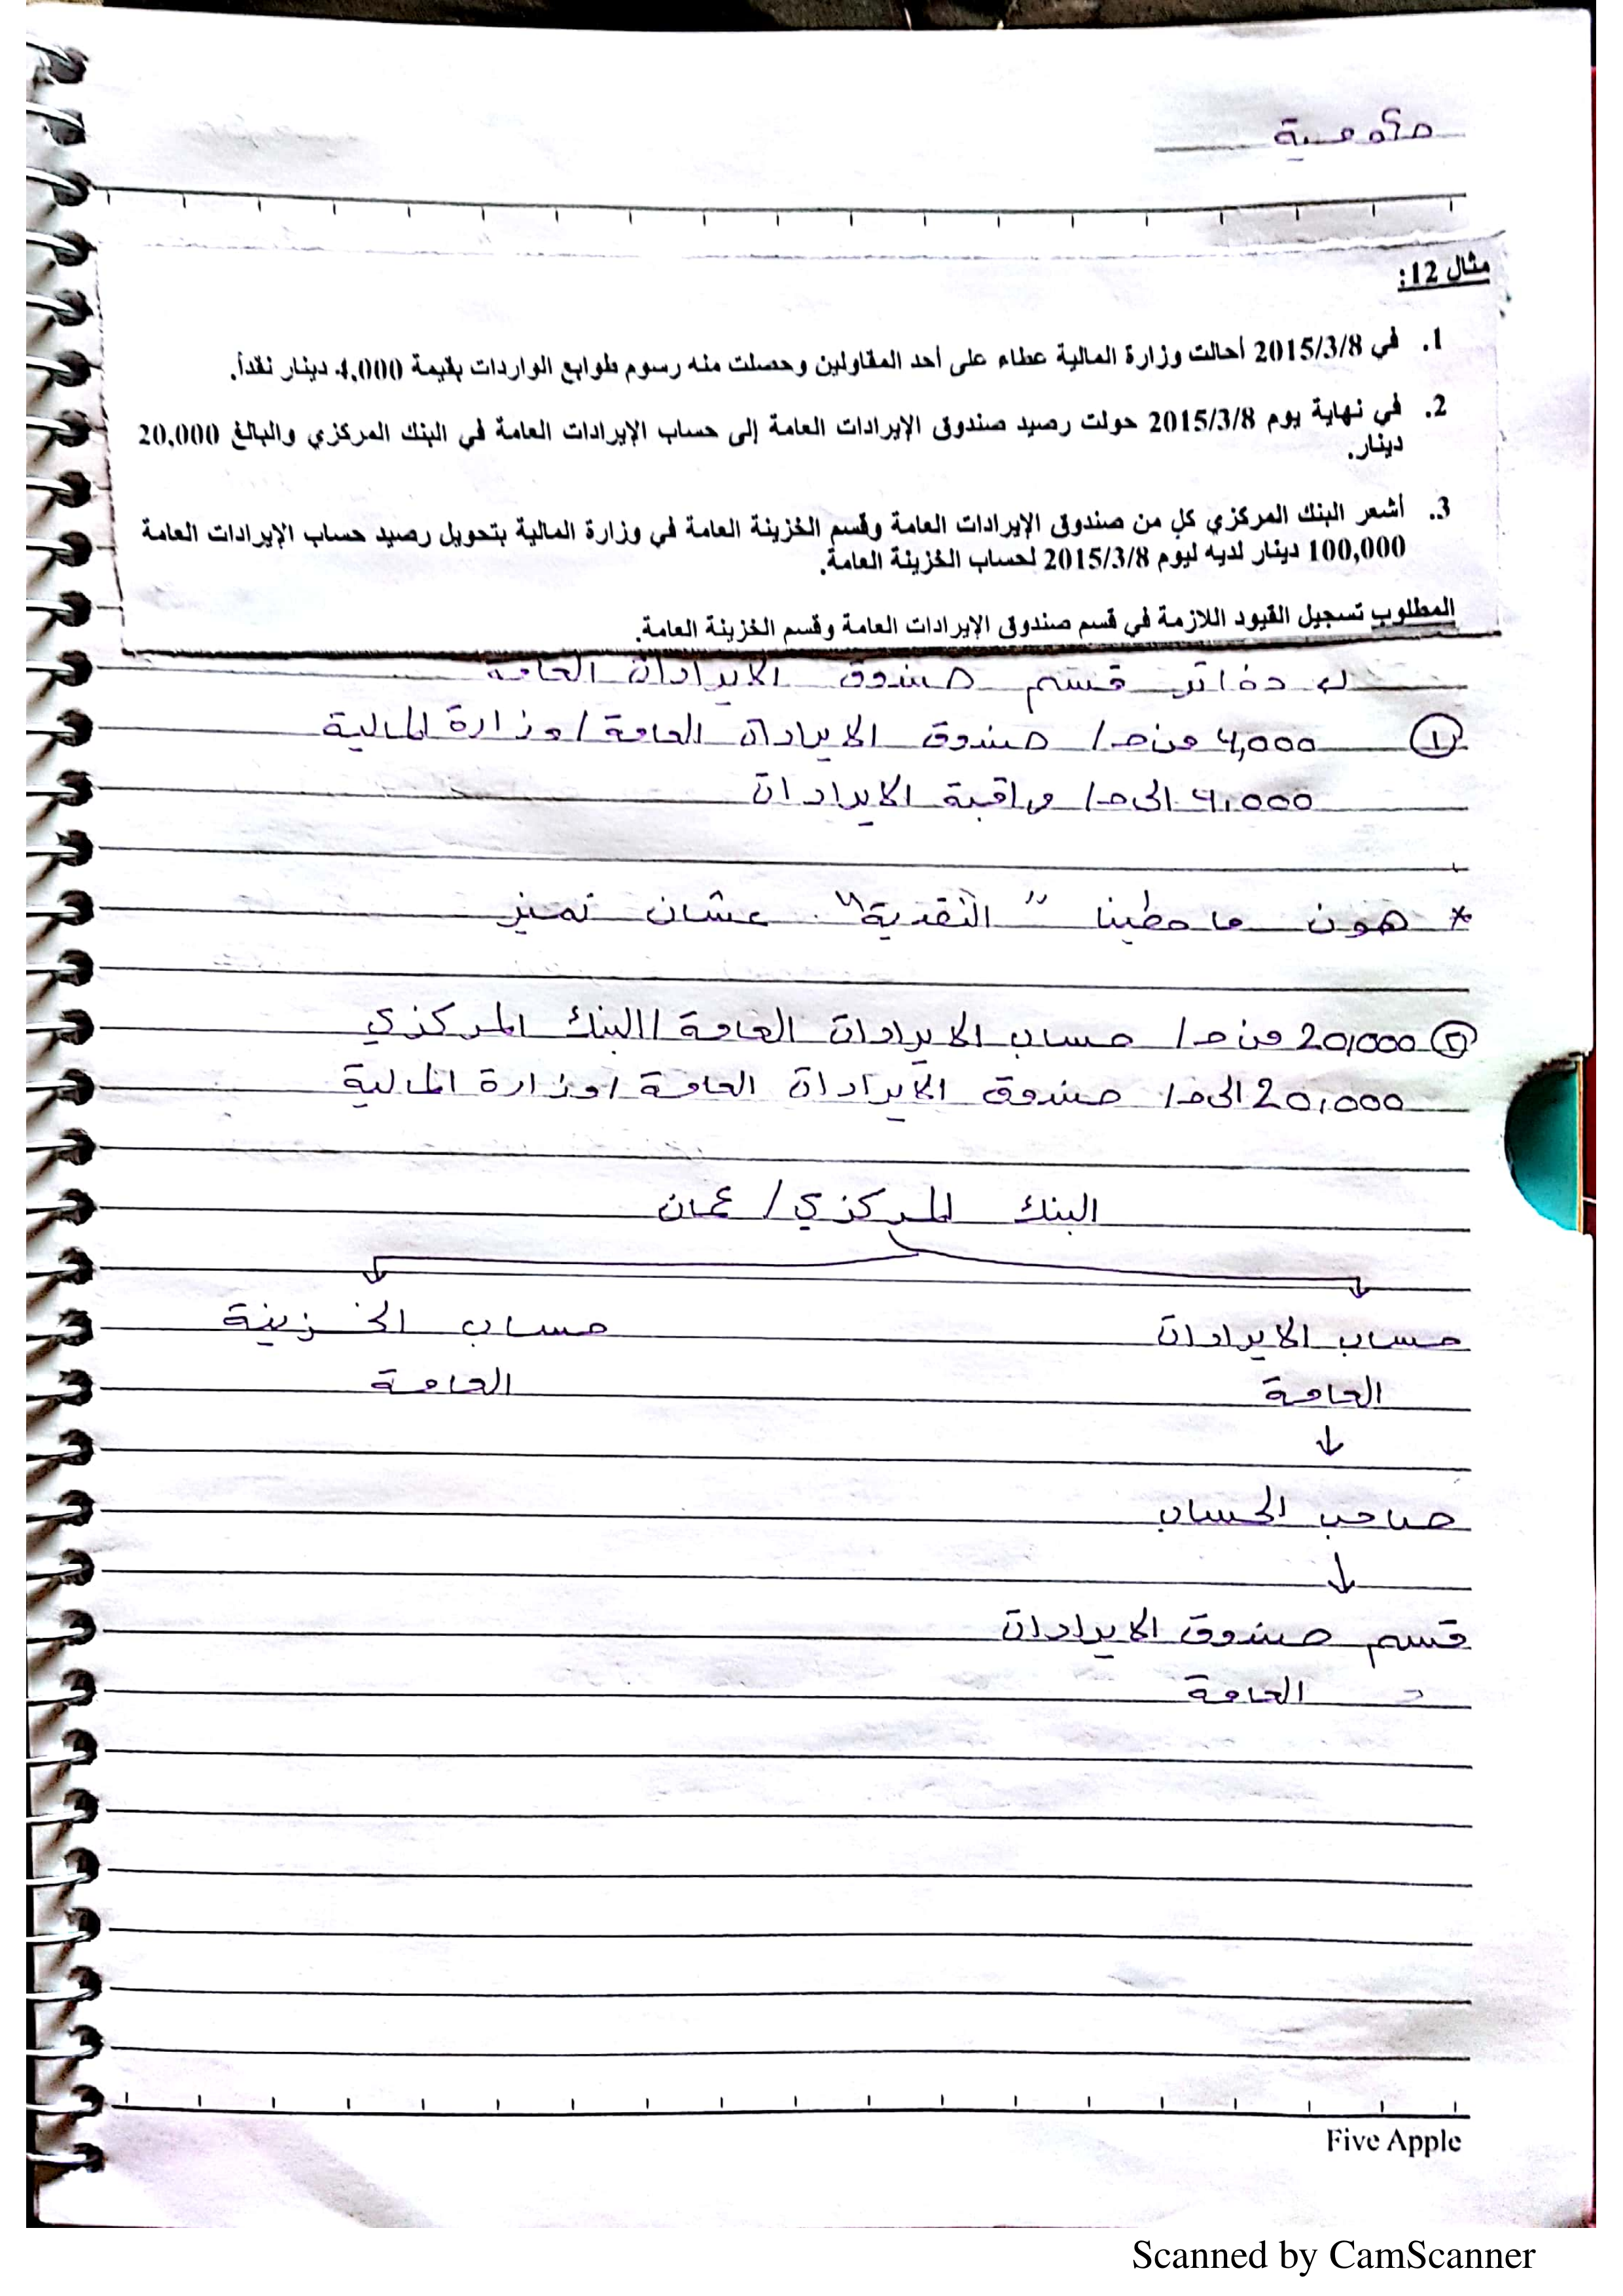 حكومية
مثال 12:
1. في 2015/3/8 أحالت وزارة المالية عطاء على أحد المقاولين وحصلت منه رسوم طوابع الواردات بقيمة 4,000 دينار نقداً.
2. في نهاية يوم 2015/3/8 حولت رصيد صندوق الإيرادات العامة إلى حساب الإيرادات العامة في البنك المركزي والبالغ 20,000
دينار.
3. أشعر البنك المركزي كل من صندوق الإيرادات العامة وقسم الخزينة العامة في وزارة المالية بتحويل رصيد حساب الإيرادات العامة
100,000 دينار لديه ليوم 2015/3/8 لحساب الخزينة العامة.
المطلوب تسجيل القيود اللازمة في قسم صندوق الإيرادات العامة وقسم الخزينة العامة.
دفاتر قسم صندوق الايرادات العامة
① 4,000 من ح/ صندوق الايرادات العامة / وزارة المالية
4,000 الى ح/ مراقبة الايرادات
* هون ما حطينا "النقدية" عشان نميز
② 20,000 من ح/ حساب الايرادات العامة / البنك المركزي
20,000 الى ح/ صندوق الايرادات العامة / وزارة المالية
البنك المركزي / عمان
حساب الايرادات حساب الخزينة
العامة العامة
↓
صاحب الحساب
↓
قسم صندوق الايرادات
العامة
Five Apple
Scanned by CamScanner